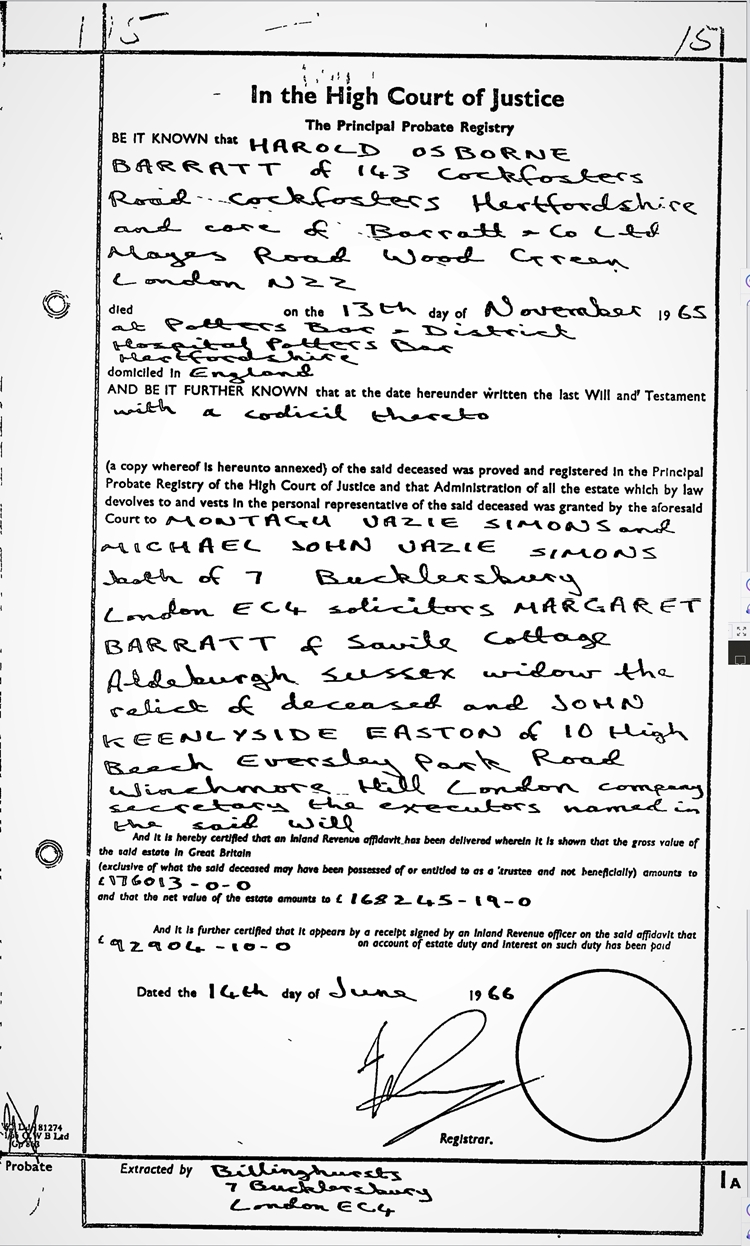 115
151
In the High Court of Justice
The Principal Probate Registry
BE IT KNOWN that HAROLD OSBORNE
BARRATT of 143 Cockfosters
Road Cockfosters Hertfordshire
and care of Barratt & Co Ltd
Mayes Road Wood Green
London N22
died on the 13th day of November 1965
at Potters Bar & District
Hospital Potters Bar
Hertfordshire
domiciled in England
AND BE IT FURTHER KNOWN that at the date hereunder written the last Will and Testament
with a codicil thereto
(a copy whereof is hereunto annexed) of the said deceased was proved and registered in the Principal
Probate Registry of the High Court of Justice and that Administration of all the estate which by law
devolves to and vests in the personal representative of the said deceased was granted by the aforesaid
Court to MONTAGU VAZIE SIMONS and
MICHAEL JOHN VAZIE SIMONS
both of 7 Bucklersbury
London EC4 solicitors MARGARET
BARRATT of Savile Cottage
Aldeburgh Sussex widow the
relict of deceased and JOHN
KEENLYSIDE EASTON of 10 High
Beech Eversley Park Road
Winchmore Hill London company
secretary the executors named in
the said Will
And it is hereby certified that an Inland Revenue affidavit has been delivered wherein it is shown that the gross value of
the said estate in Great Britain
(exclusive of what the said deceased may have been possessed of or entitled to as a trustee and not beneficially) amounts to
£176013-0-0
and that the net value of the estate amounts to £ 168245-19-0
And it is further certified that it appears by a receipt signed by an Inland Revenue officer on the said affidavit that
£92904-10-0 on account of estate duty and interest on such duty has been paid
Dated the 14th day of June 1966
Registrar.
81274
W B Ltd
Probate
Extracted by Billinghursts
7 Bucklersbury
London EC4
1A